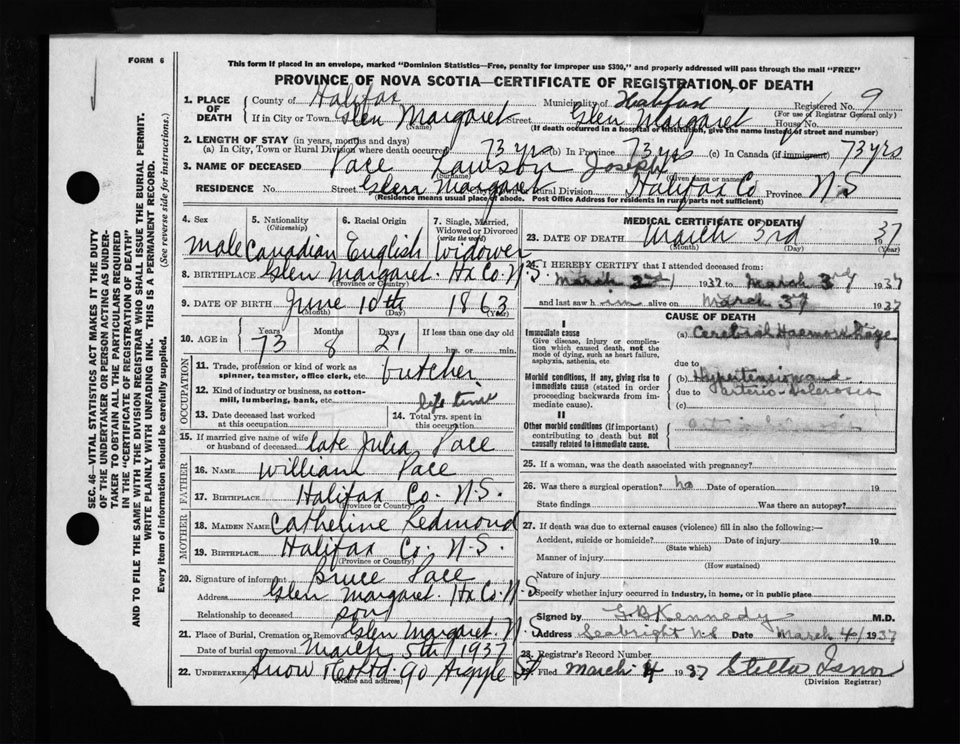 FORM 6
This form if placed in an envelope, marked "Dominion Statistics—Free, penalty for improper use $300," and properly addressed will pass through the mail "FREE"
PROVINCE OF NOVA SCOTIA—CERTIFICATE OF REGISTRATION OF DEATH
1. PLACE OF DEATH County of Halifax Municipality of Halifax Registered No. 9
(For use of Registrar General only)
If in City or Town Glen Margaret Street Glen Margaret House No.
(Name) (If death occurred in a hospital or institution, give the name instead of street and number)
2. LENGTH OF STAY (in years, months and days)
(a) In City, Town or Rural Division where death occurred 73 yrs (b) In Province 73 yrs (c) In Canada (if immigrant) 73 yrs
3. NAME OF DECEASED Pace Joseph
(Surname)
RESIDENCE No. Street Glen Margaret Rural Division Halifax Co Province N.S
(Residence means usual place of abode. Post Office Address for residents in rural parts not sufficient)
4. Sex 5. Nationality (Citizenship) 6. Racial Origin 7. Single, Married, Widowed or Divorced (write the word)
Male Canadian English Widower
8. BIRTHPLACE Glen Margaret. Hx Co. N.S.
(Province or Country)
9. DATE OF BIRTH June 10th 1863
(Month) (Day) (Year)
10. AGE in Years Months Days If less than one day old
73 8 21 hrs. or min.
OCCUPATION
11. Trade, profession or kind of work as spinner, teamster, office clerk, etc. butcher
12. Kind of industry or business, as cotton-mill, lumbering, bank, etc.
13. Date deceased last worked at this occupation 14. Total yrs. spent in this occupation
15. If married give name of wife or husband of deceased late Julia Pace
FATHER
16. NAME William Pace
17. BIRTHPLACE Halifax Co. N.S.
(Province or Country)
MOTHER
18. MAIDEN NAME Catherine Redmond
19. BIRTHPLACE Halifax Co. N.S.
(Province or Country)
20. Signature of informant Bruce Pace
Address Glen Margaret. Hx Co. N.S
Relationship to deceased son
21. Place of Burial, Cremation or Removal Glen Margaret. N.
Date of burial or removal March 5th 1937
22. UNDERTAKER Snow & Co Ltd 90 Argyle St
(Name and address)
MEDICAL CERTIFICATE OF DEATH
23. DATE OF DEATH March 3rd 1937
(Month) (Day) (Year)
24. I HEREBY CERTIFY that I attended deceased from:
March 2nd 1937 to March 3rd 1937
and last saw him alive on March 3rd 1937
CAUSE OF DEATH
I
Immediate cause (a) Cerebral Haemorrhage
Give disease, injury or complication which caused death, not the mode of dying, such as heart failure, asphyxia, asthenia, etc.
due to
Morbid conditions, if any, giving rise to immediate cause (stated in order proceeding backwards from immediate cause). (b) Hypertension and
due to arterio-sclerosis
(c)
II
Other morbid conditions (if important) contributing to death but not causally related to immediate cause.
25. If a woman, was the death associated with pregnancy?
26. Was there a surgical operation? no Date of operation 19
State findings Was there an autopsy?
27. If death was due to external causes (violence) fill in also the following:—
Accident, suicide or homicide? Date of injury 19
(State which)
Manner of injury
(How sustained)
Nature of injury
Specify whether injury occurred in industry, in home, or in public place
Signed by G B Kennedy M.D.
Address Seabright N.S Date March 4 1937
28. Registrar's Record Number
Filed March 4 1937 Stella Isnor
(Division Registrar)
SEC. 46—VITAL STATISTICS ACT MAKES IT THE DUTY
OF THE UNDERTAKER OR PERSON ACTING AS UNDER-
TAKER TO OBTAIN ALL THE PARTICULARS REQUIRED
IN THE "CERTIFICATE OF REGISTRATION OF DEATH"
AND TO FILE THE SAME WITH THE DIVISION REGISTRAR WHO SHALL ISSUE THE BURIAL PERMIT.
WRITE PLAINLY WITH UNFADING INK. THIS IS A PERMANENT RECORD.
Every item of information should be carefully supplied. (See reverse side for instructions.)